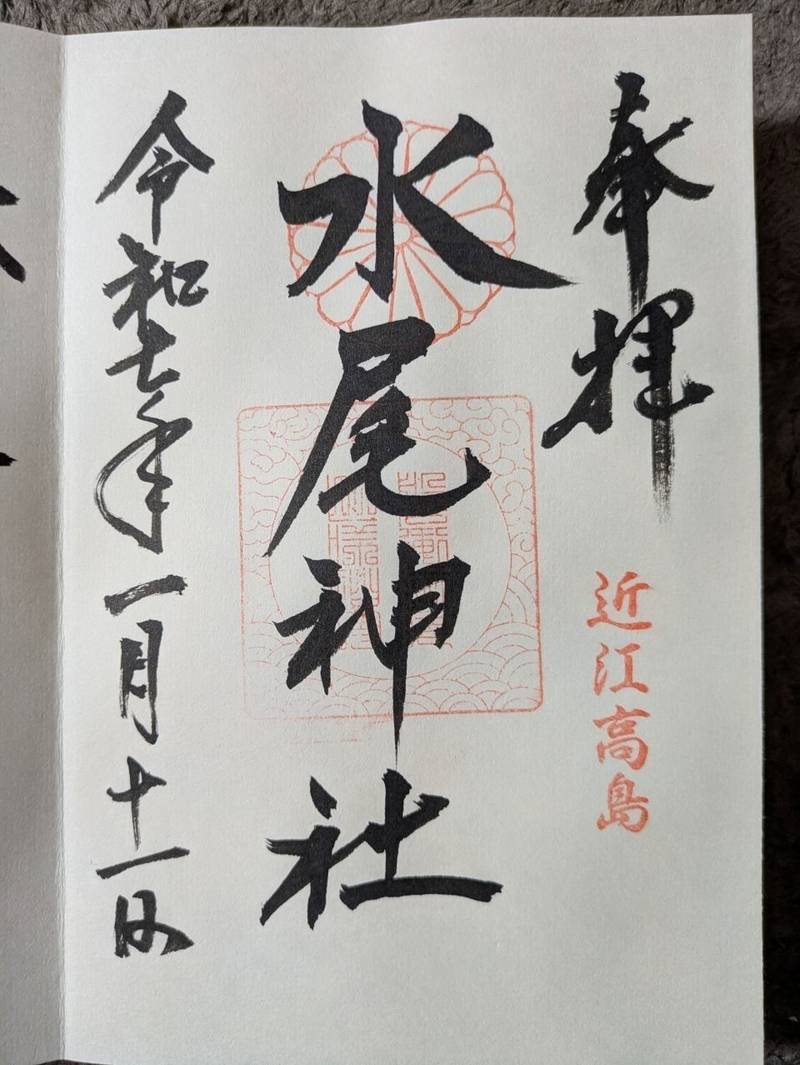 奉拝
近江高島
水尾神社
令和七年一月十一日